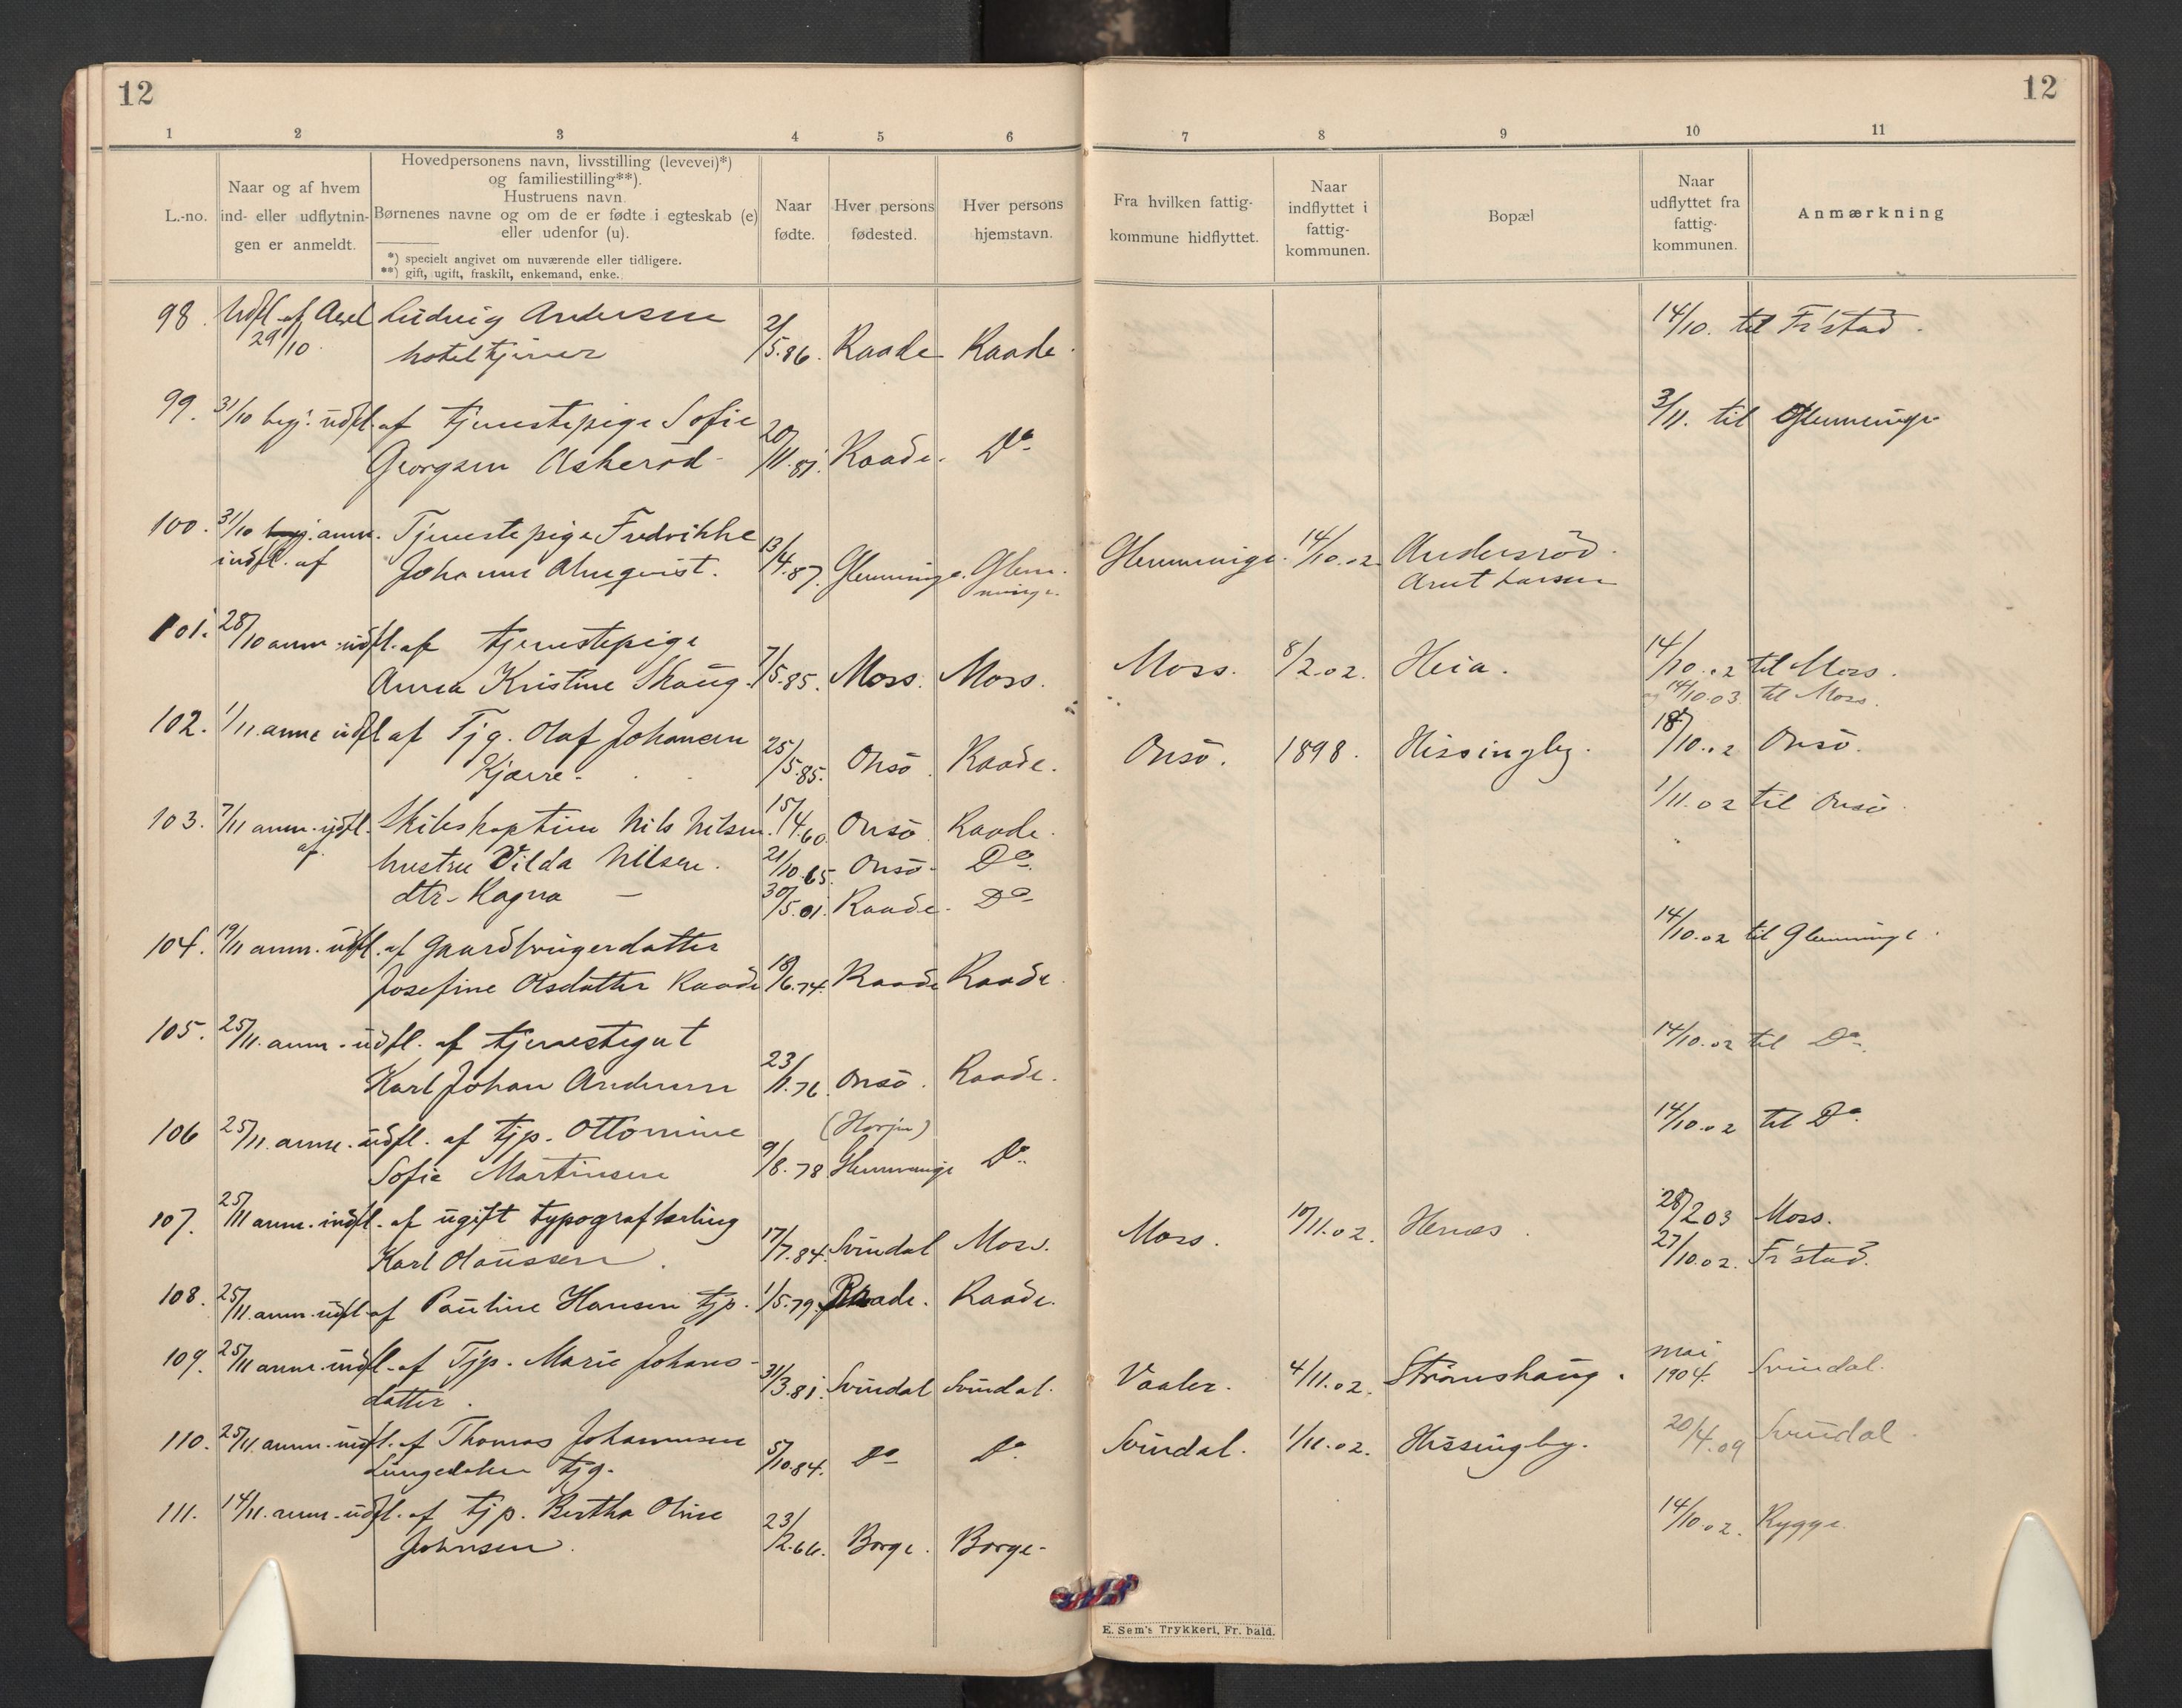 12
12
1 2 3 4 5 6 7 8 9 10 11
L.-no.
Naar og af hvem
ind- eller udflytnin-
gen er anmeldt.
Hovedpersonens navn, livsstilling (levevei)*)
og familiestilling**).
Hustruens navn.
Børnenes navne og om de er fødte i egteskab (e)
eller udenfor (u).
*) specielt angivet om nuværende eller tidligere.
**) gift, ugift, fraskilt, enkemand, enke.
Naar
fødte.
Hver persons
fødested.
Hver persons
hjemstavn.
Fra hvilken fattig-
kommune hidflyttet.
Naar
indflyttet i
fattig-
kommunen.
Bopæl
Naar
udflyttet fra
fattig-
kommunen.
Anmærkning
98. Udfl. af Axel Ludvig Andersen 14/10. til Fr'stad.
29/10 hoteltjener 2/5.86. Raade Raade.
99. 31/10 begj. udfl. af tjenestepige Sofie 3/11. til Glemminge
Georgsen Askerød 20/11.81. Raade. Do
100. 31/10 anm. Tjenestepige Fredrikke
indfl. af Johanne Almqvist. 13/4.87. Glemminge. Glem- Glemminge. 14/10.02. Andersrød.
minge. Arnt Larsen
101. 28/10 anm. udfl. af tjenestepige
Anna Kristine Skaug. 7/5.85. Moss. Moss. Moss. 8/2.02. Heia. 14/10.02 til Moss.
14/10.03 til Moss.
102. 1/11. anm. udfl. af Tjg. Olaf Johansen
Kjærre. 25/5.85. Onsø. Raade. Onsø. 1898. Hissingby. 18/10.02 Onsø.
103. 7/11 anm. udfl. Skibskaptein Nils Nilsen. 15/4.60 Onsø. Raade. 1/11.02 til Onsø.
af hustru Vilda Nilsen. 21/10.65. Onsø. Do.
dtr. Ragna — 30/5.01. Raade. Do
104. 19/11 anm. udfl. af gaardbrugerdatter 14/10.02 til Glemminge.
Josefine Olsdatter Raade 18/6.74. Raade Raade.
105. 25/11. anm. udfl. af tjenestegut 14/10.02 til Do.
Karl Johan Andersen 23/11.76. Onsø. Raade.
106 25/11. anm. udfl. af tjp. Ottomine 14/10.02 til Do.
Sofie Martinsen 9/8.78 Glemminge Do.
107. 25/11 anm. indfl. af ugift typograflærling 28/2 03 Moss.
Karl Olaussen. 17/7.84. Svindal Moss. Moss. 10/11.02. Hernes. 27/10.02. Fr'stad.
108. 25/11. anm. udfl. af Pauline Hansen tjp. 1/5.79. Raade. Raade.
109. 25/11 anm. indfl. af Tjp. Marie Johans-
datter. 31/3.81. Svindal Svindal. Vaaler. 4/11.02. Strømshaug. mai 1904. Svindal.
110. 25/11. anm. indfl. af Thomas Johannesen
tjg. 5/10.84. Do Do. Svindal. 1/11.02. Hissingby. 20/4.09 Svindal.
111. 14/11. anm. udfl. af tjp. Bertha Oline 14/10.02. Rygge.
Johnsen. 23/2.66. Borge. Borge.
E. Sem's Trykkeri, Fr. hald.